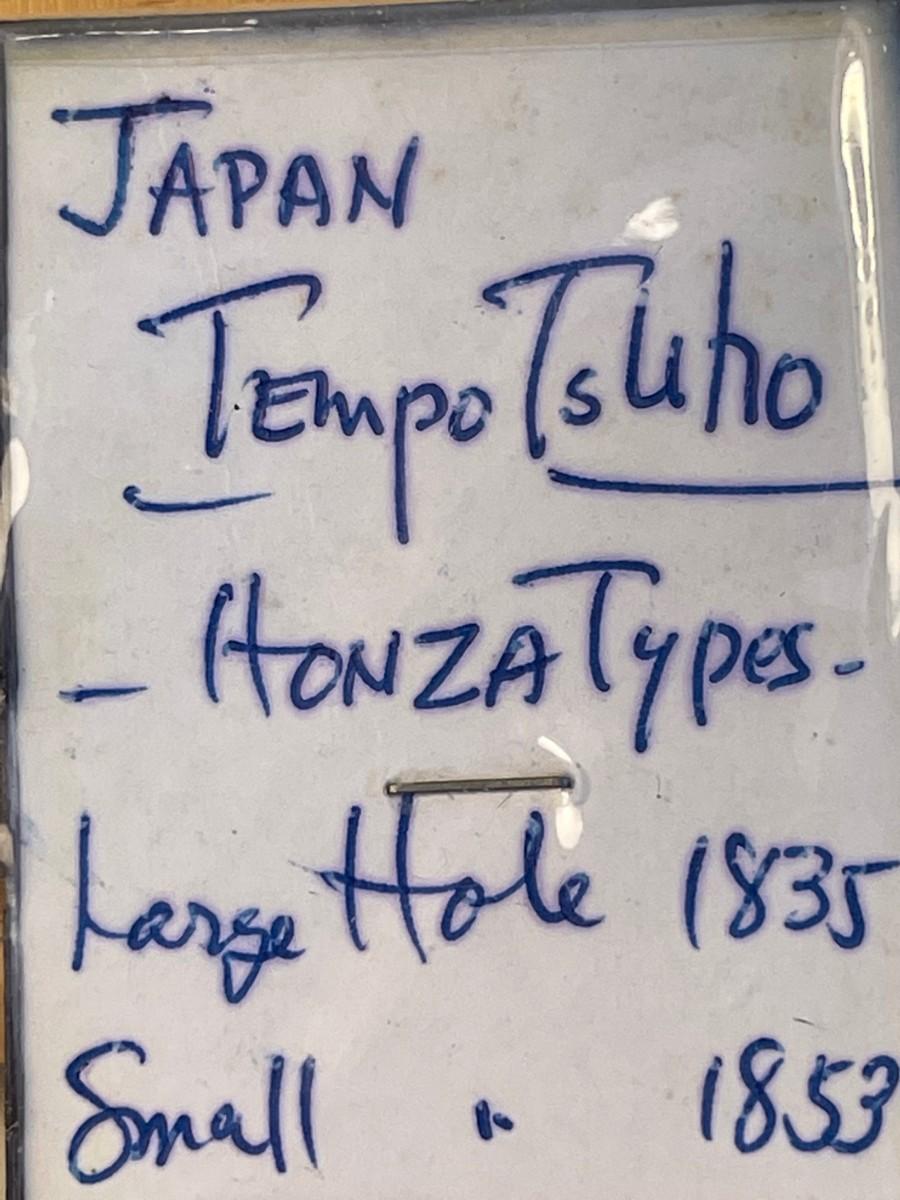 JAPAN
Tempo Tsuho
- HONZA Types -
Large Hole 1835
Small " 1853